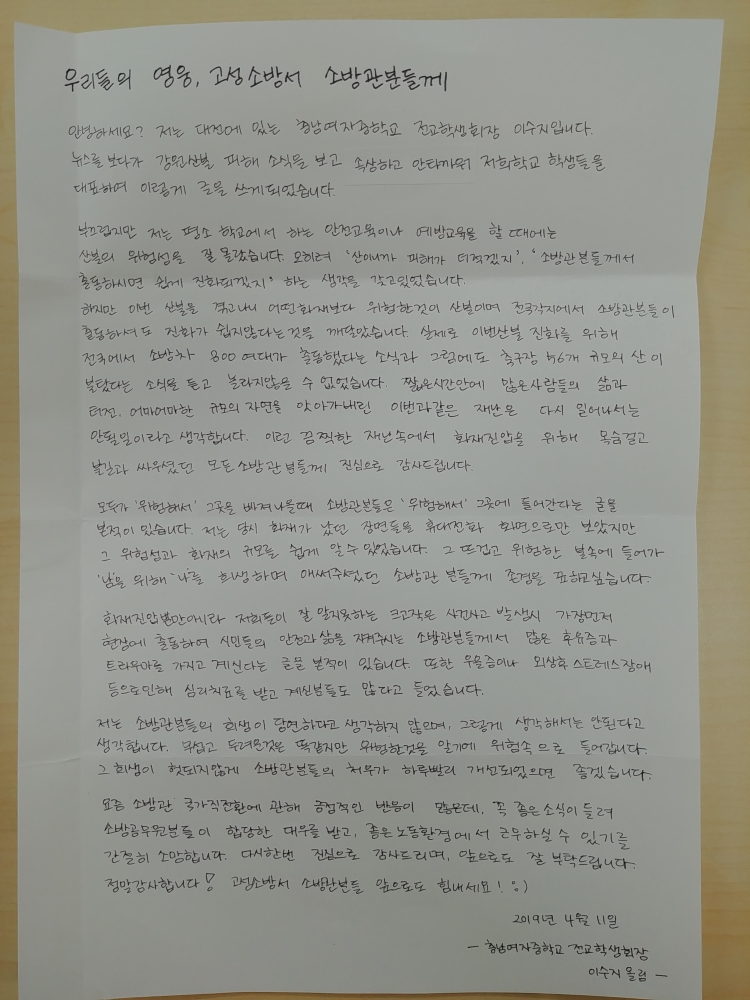 우리들의 영웅, 고성소방서 소방관분들께
안녕하세요? 저는 대전에 있는 충남여자중학교 전교학생회장 이수지입니다.
뉴스를 보다가 강원산불 피해 소식을 보고 속상하고 안타까워 저희학교 학생들을
대표하여 이렇게 글을 쓰게되었습니다.
부끄럽지만 저는 평소 학교에서 하는 안전교육이나 예방교육을 할 때에는
산불의 위험성을 잘 몰랐습니다. 오히려 '산이니까 피해가 더적겠지', '소방관분들께서
출동하시면 쉽게 진화되겠지' 하는 생각을 갖고있었습니다.
하지만 이번 산불을 겪고나니 어떤화재보다 위험한것이 산불이며 전국각지에서 소방관분들이
출동하셔도 진화가 쉽지않다는것을 깨달았습니다. 실제로 이번산불 진화를 위해
전국에서 소방차 800여대가 출동했다는 소식과 그럼에도 축구장 756개 규모의 산이
불탔다는 소식을 듣고 놀라지않을 수 없었습니다. 짧은시간안에 많은사람들의 삶과
터전. 어마어마한 규모의 자연을 앗아가버린 이번과같은 재난은 다시 일어나서는
안될일이라고 생각합니다. 이런 끔찍한 재난속에서 화재진압을 위해 목숨걸고
불길과 싸우셨던 모든소방관분들께 진심으로 감사드립니다.
모두가 '위험해서' 그곳을 빠져나올때 소방관분들은 '위험해서' 그곳에 들어간다는 글을
본적이 있습니다. 저는 당시 화재가 났던 장면들을 휴대전화 화면으로만 보았지만
그 위험성과 화재의 규모를 쉽게 알 수 있었습니다. 그 뜨겁고 위험한 불속에 들어가
'남'을 위해 '나'를 희생하며 애써주셨던 소방관 분들께 존경을 표하고싶습니다.
화재진압뿐만아니라 저희들이 잘 알지못하는 크고작은 사건사고 발생시 가장먼저
현장에 출동하여 시민들의 안전과삶을 지켜주시는 소방관분들께서 많은 후유증과
트라우마로 가지고 계신다는 글을 본적이 있습니다. 또한 우울증이나 외상후 스트레스장애
등으로인해 심리치료를 받고 계신분들도 많다고 들었습니다.
저는 소방관분들의 희생이 당연하다고 생각하지 않으며, 그렇게 생각해서는 안된다고
생각합니다. 무섭고 두려운것은 똑같지만 위험한것을 알기에 위험속으로 들어갑니다.
그 희생이 헛되지않게 소방관분들의 처우가 하루빨리 개선되었으면 좋겠습니다.
요즘 소방관 국가직전환에 관해 긍정적인 반응이 많은데, 꼭 좋은소식이 들려
소방공무원분들이 합당한 대우를 받고, 좋은노동환경에서 근무하실 수 있기를
간절히 소망합니다. 다시한번 진심으로 감사드리며, 앞으로도 잘 부탁드립니다.
정말감사합니다! 고성소방서 소방관분들 앞으로도 힘내세요! :)
2019년 4월 11일
- 충남여자중학교 전교학생회장
이수지 올림 -